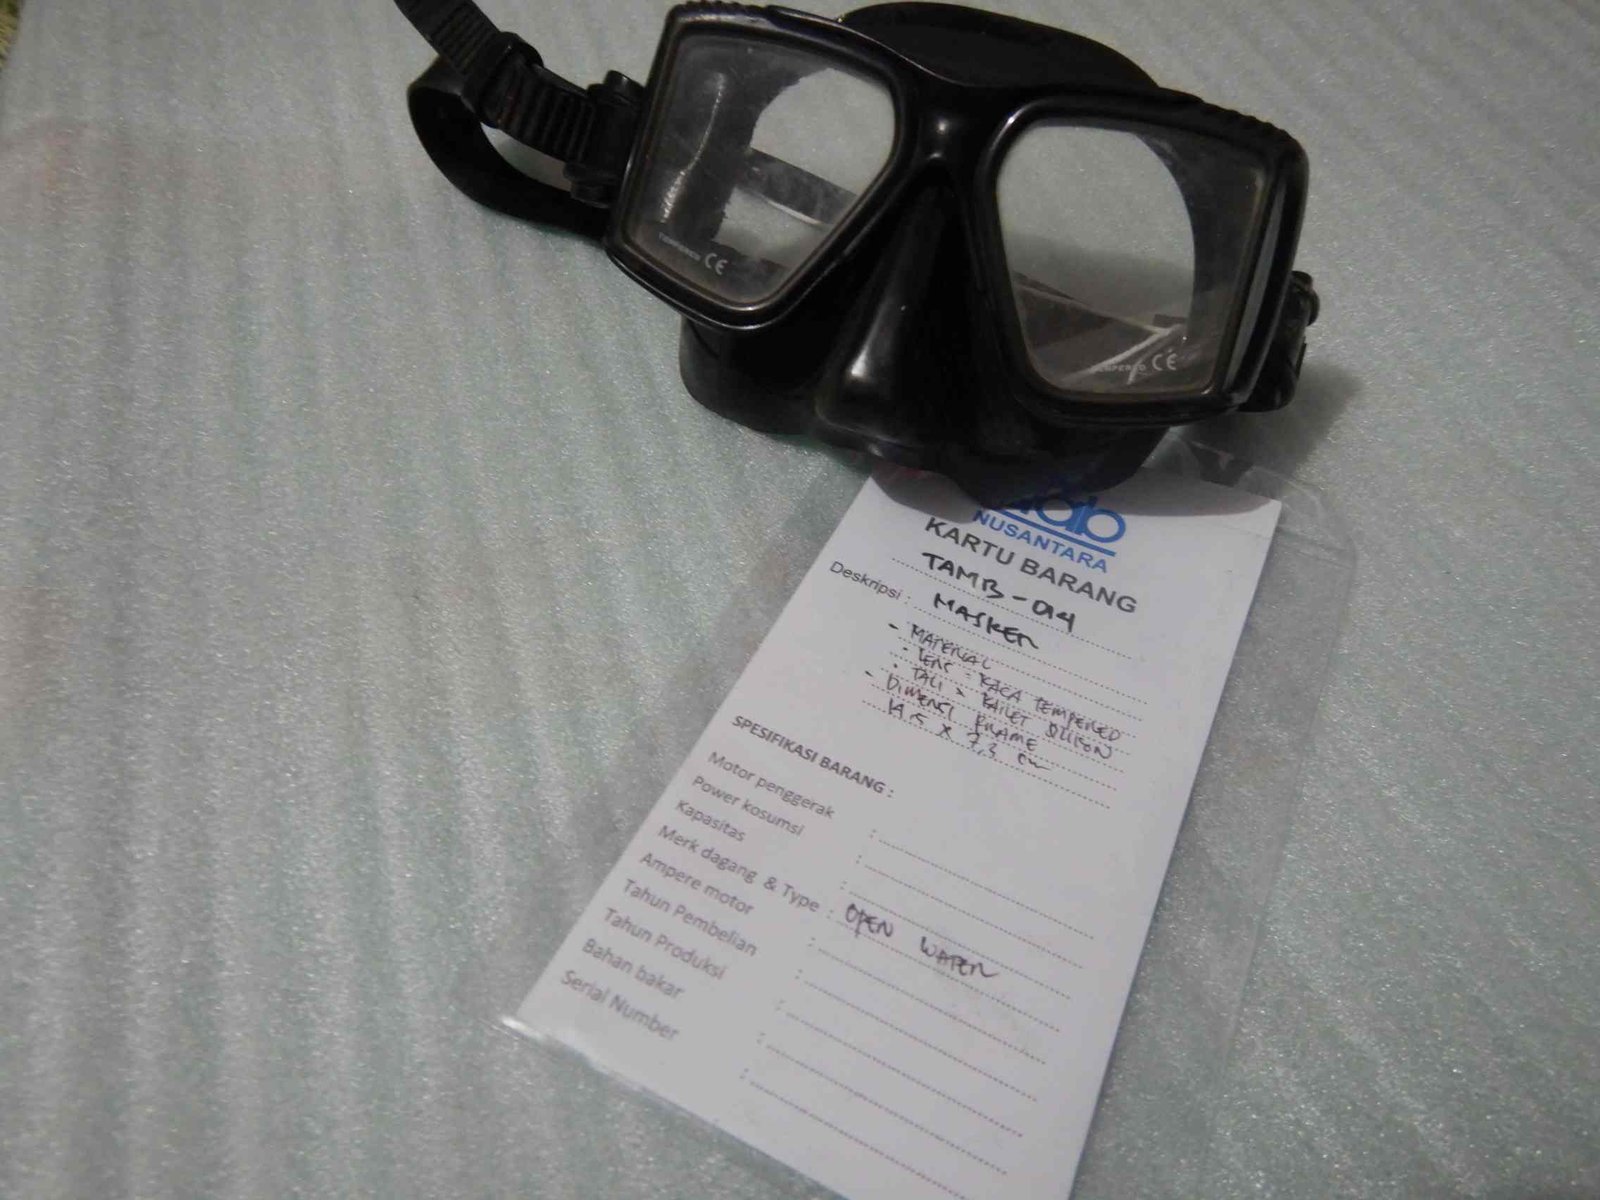 TEMPERED CE
TEMPERED CE
NUSANTARA
KARTU BARANG
TAMB-014
Deskripsi : MASKER
- MATERIAL
- LENS = KACA TEMPERED
- TALI = KARET SILIKON
- DIMENSI FRAME
14.5 x 7,3 cm
SPESIFIKASI BARANG :
Motor penggerak :
Power kosumsi :
Kapasitas :
Merk dagang & Type : OPEN WATER
Ampere motor :
Tahun Pembelian :
Tahun Produksi :
Bahan bakar :
Serial Number :